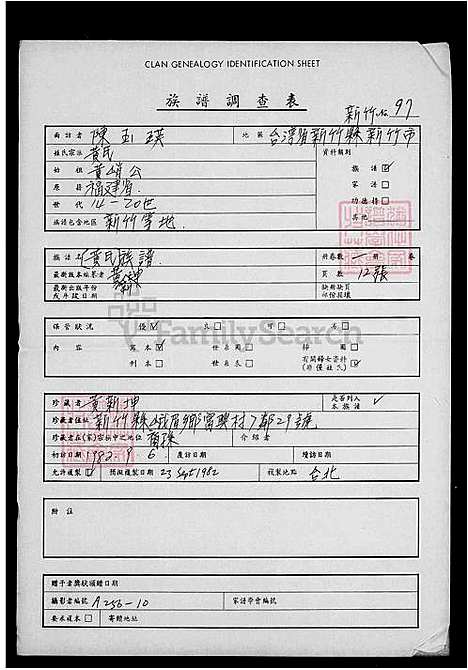 CLAN GENEALOGY IDENTIFICATION SHEET
族譜調查表
新竹 No. 97
面訪者 陳玉瑛 地區 台灣省新竹縣新竹市
姓氏宗派 黃氏 資料類別
始祖 黃峭公 族譜 ✓
原籍 福建省 家譜
世代 14-20世 功德榜
族譜包含地區 新竹等地 其他
族譜名 黃氏族譜 冊卷數 一 卷
最新版本編纂者 黃 頁數 12張
最新出版年份
或年譜日期
缺冊缺頁
保管狀況 優 ✓ 良 可 劣
內容 寫本 ✓
刊本
FamilySearch
珍藏者 黃新坤 是否列入
本族譜 ✓
珍藏者住址 新竹縣峨眉鄉富興村7鄰29號
珍藏者在(家)宗族中之地位 裔孫 介紹者
初訪日期 1982. 9. 6 覆訪日期 續訪日期
允許複製 預擬複製日期 23 Sept 1982 複製地點 台北
附註
贈予者獎狀頒贈日期
攝影者編號 A256-10 家譜學會編號
要求複本 寄贈地址